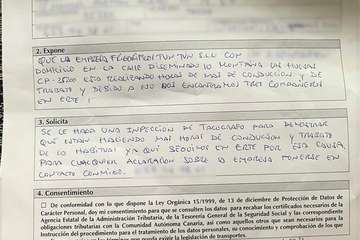 2. Expone
QUE LA EMPRESA FRIGORIFICO TUN TUN S.L.U CON
DOMICILIO EN LA CALLE DISEMINADO 10 MONTAÑA DE
CP-35200 ESTA REALIZANDO HORAS DE MAS DE CONDUCCION Y DE
TRABAJO Y DEBIDO A ELLO NOS ENCONTRAMOS TRES COMPAÑEROS
EN ERTE!
3. Solicita
SE LE HAGA UNA INSPECCION DE TACOGRAFO PARA DEMOSTRAR
QUE ESTAN HACIENDO MAS HORAS DE CONDUCCION Y TRABAJO
DE LO HABITUAL YA QUE SEGUIMOS EN ERTE POR ESA CAUSA,
PARA CUALQUIER ACLARACION SOBRE LA EMPRESA PONERSE EN
CONTACTO CONMIGO.
4. Consentimiento
De conformidad con lo que dispone la Ley Orgánica 15/1999, de 13 de diciembre de Protección de Datos de
Carácter Personal, doy mi consentimiento para que se consulten los datos para recabar los certificados necesarios de la
Agencia Estatal de la Administración Tributaria, de la Tesorería General de la Seguridad Social y las correspondiente
obligaciones tributarias con la Comunidad Autónoma Canaria, así como aquellos otros que sean necesarios para la
Instrucción del procedimiento para el tratamiento de los datos personales, su conocimiento y comprobación de los que
que exija la legislación de transporte.